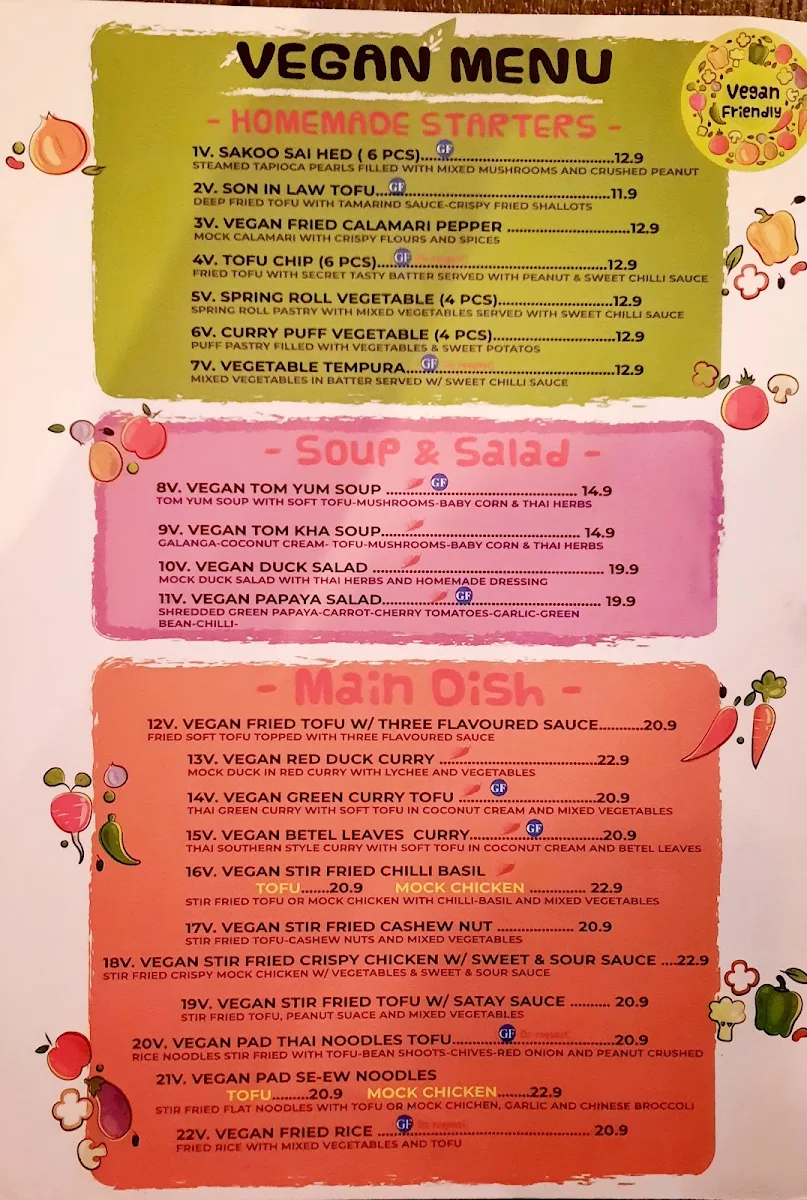 VEGAN MENU
Vegan
Friendly
- HOMEMADE STARTERS -
1V. SAKOO SAI HED ( 6 PCS)....GF..........12.9
STEAMED TAPIOCA PEARLS FILLED WITH MIXED MUSHROOMS AND CRUSHED PEANUT
2V. SON IN LAW TOFU...GF..........11.9
DEEP FRIED TOFU WITH TAMARIND SAUCE-CRISPY FRIED SHALLOTS
3V. VEGAN FRIED CALAMARI PEPPER ..........12.9
MOCK CALAMARI WITH CRISPY FLOURS AND SPICES
4V. TOFU CHIP (6 PCS)....GF On request..........12.9
FRIED TOFU WITH SECRET TASTY BATTER SERVED WITH PEANUT & SWEET CHILLI SAUCE
5V. SPRING ROLL VEGETABLE (4 PCS)..........12.9
SPRING ROLL PASTRY WITH MIXED VEGETABLES SERVED WITH SWEET CHILLI SAUCE
6V. CURRY PUFF VEGETABLE (4 PCS)..........12.9
PUFF PASTRY FILLED WITH VEGETABLES & SWEET POTATOS
7V. VEGETABLE TEMPURA...GF On request..........12.9
MIXED VEGETABLES IN BATTER SERVED W/ SWEET CHILLI SAUCE
- Soup & Salad -
8V. VEGAN TOM YUM SOUP ....GF.......... 14.9
TOM YUM SOUP WITH SOFT TOFU-MUSHROOMS-BABY CORN & THAI HERBS
9V. VEGAN TOM KHA SOUP.......... 14.9
GALANGA-COCONUT CREAM- TOFU-MUSHROOMS-BABY CORN & THAI HERBS
10V. VEGAN DUCK SALAD .......... 19.9
MOCK DUCK SALAD WITH THAI HERBS AND HOMEMADE DRESSING
11V. VEGAN PAPAYA SALAD....GF.......... 19.9
SHREDDED GREEN PAPAYA-CARROT-CHERRY TOMATOES-GARLIC-GREEN
BEAN-CHILLI-
- Main Dish -
12V. VEGAN FRIED TOFU W/ THREE FLAVOURED SAUCE..........20.9
FRIED SOFT TOFU TOPPED WITH THREE FLAVOURED SAUCE
13V. VEGAN RED DUCK CURRY ..........22.9
MOCK DUCK IN RED CURRY WITH LYCHEE AND VEGETABLES
14V. VEGAN GREEN CURRY TOFU ....GF..........20.9
THAI GREEN CURRY WITH SOFT TOFU IN COCONUT CREAM AND MIXED VEGETABLES
15V. VEGAN BETEL LEAVES CURRY....GF..........20.9
THAI SOUTHERN STYLE CURRY WITH SOFT TOFU IN COCONUT CREAM AND BETEL LEAVES
16V. VEGAN STIR FRIED CHILLI BASIL
TOFU.......20.9 MOCK CHICKEN .......... 22.9
STIR FRIED TOFU OR MOCK CHICKEN WITH CHILLI-BASIL AND MIXED VEGETABLES
17V. VEGAN STIR FRIED CASHEW NUT .......... 20.9
STIR FRIED TOFU-CASHEW NUTS AND MIXED VEGETABLES
18V. VEGAN STIR FRIED CRISPY CHICKEN W/ SWEET & SOUR SAUCE ....22.9
STIR FRIED CRISPY MOCK CHICKEN W/ VEGETABLES & SWEET & SOUR SAUCE
19V. VEGAN STIR FRIED TOFU W/ SATAY SAUCE .......... 20.9
STIR FRIED TOFU, PEANUT SUACE AND MIXED VEGETABLES
20V. VEGAN PAD THAI NOODLES TOFU....GF On request..........20.9
RICE NOODLES STIR FRIED WITH TOFU-BEAN SHOOTS-CHIVES-RED ONION AND PEANUT CRUSHED
21V. VEGAN PAD SE-EW NOODLES
TOFU..........20.9 MOCK CHICKEN........22.9
STIR FRIED FLAT NOODLES WITH TOFU OR MOCK CHICHEN, GARLIC AND CHINESE BROCCOLI
22V. VEGAN FRIED RICE ...GF On request.......... 20.9
FRIED RICE WITH MIXED VEGETABLES AND TOFU